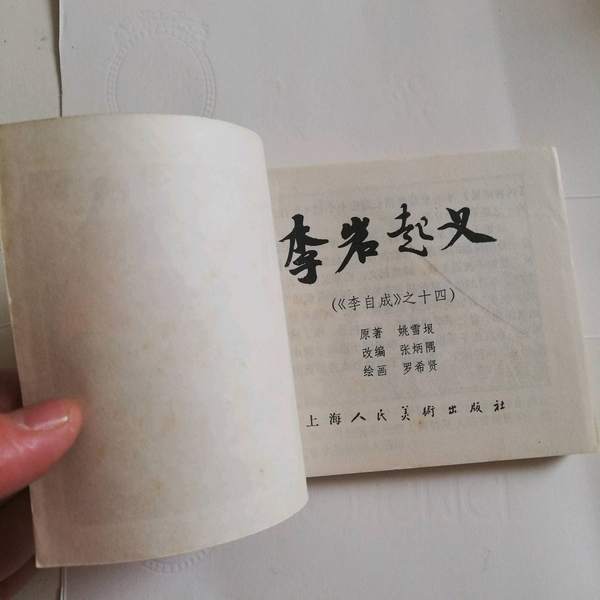 李岩起义
(《李自成》之十四)
原著 姚雪垠
改编 张炳隅
绘画 罗希贤
上海人民美術出版社